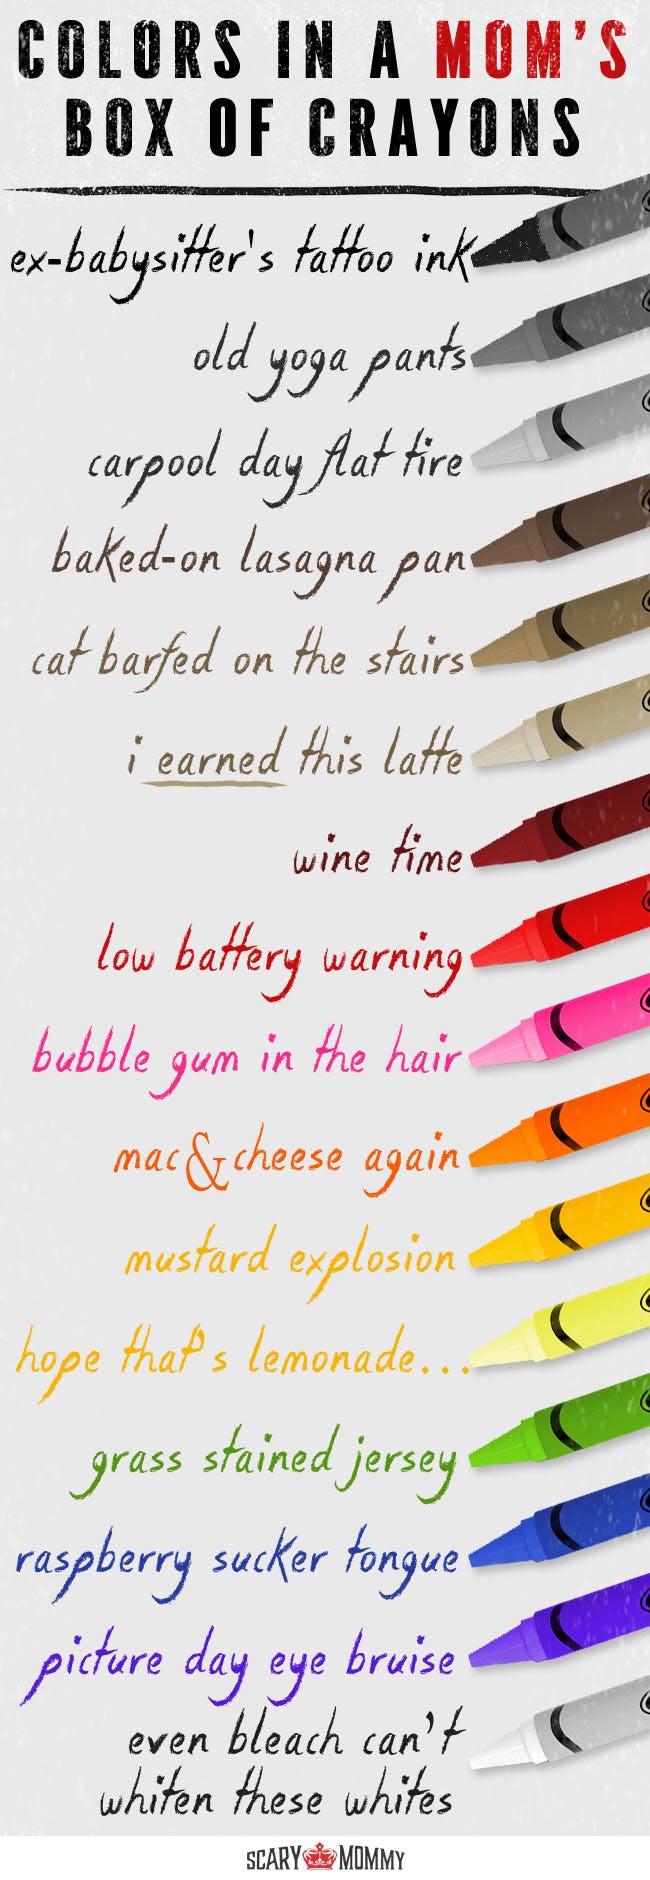 COLORS IN A MOM'S
BOX OF CRAYONS
ex-babysitter's tattoo ink
old yoga pants
carpool day flat tire
baked-on lasagna pan
cat barfed on the stairs
i earned this latte
wine time
low battery warning
bubble gum in the hair
mac&cheese again
mustard explosion
hope that's lemonade...
grass stained jersey
raspberry sucker tongue
picture day eye bruise
even bleach can't
whiten these whites
SCARY MOMMY